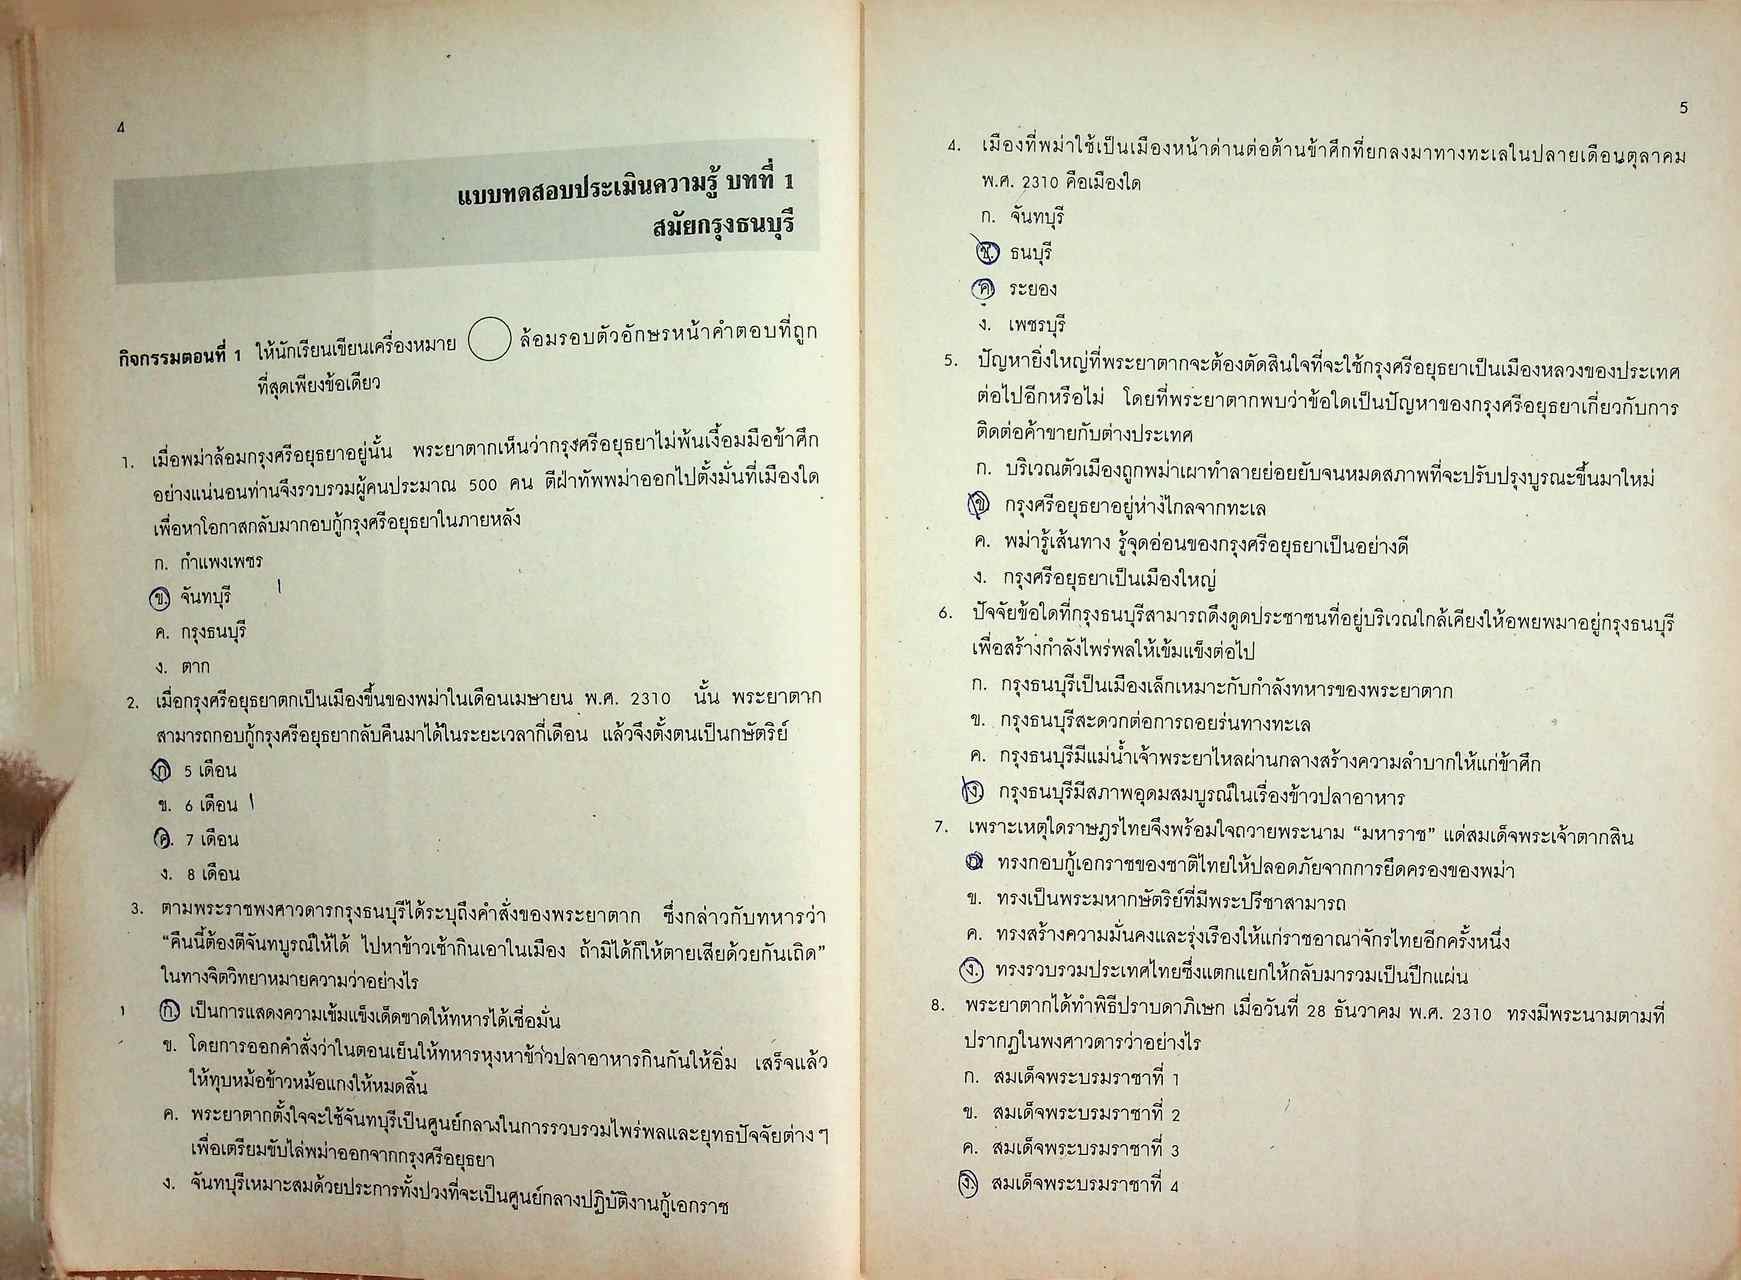 4
แบบทดสอบประเมินความรู้ บทที่ 1
สมัยกรุงธนบุรี
กิจกรรมตอนที่ 1 ให้นักเรียนเขียนเครื่องหมาย ล้อมรอบตัวอักษรหน้าคำตอบที่ถูก
ที่สุดเพียงข้อเดียว
1. เมื่อพม่าล้อมกรุงศรีอยุธยาอยู่นั้น พระยาตากเห็นว่ากรุงศรีอยุธยาไม่พ้นเงื้อมมือข้าศึก
อย่างแน่นอนท่านจึงรวบรวมผู้คนประมาณ 500 คน ตีฝ่าทัพพม่าออกไปตั้งมั่นที่เมืองใด
เพื่อหาโอกาสกลับมากอบกู้กรุงศรีอยุธยาในภายหลัง
ก. กำแพงเพชร
ข. จันทบุรี
ค. กรุงธนบุรี
ง. ตาก
2. เมื่อกรุงศรีอยุธยาตกเป็นเมืองขึ้นของพม่าในเดือนเมษายน พ.ศ. 2310 นั้น พระยาตาก
สามารถกอบกู้กรุงศรีอยุธยากลับคืนมาได้ในระยะเวลากี่เดือน แล้วจึงตั้งตนเป็นกษัตริย์
ก 5 เดือน
ข. 6 เดือน
ค. 7 เดือน
ง. 8 เดือน
3. ตามพระราชพงศาวดารกรุงธนบุรีได้ระบุถึงคำสั่งของพระยาตาก ซึ่งกล่าวกับทหารว่า
“คืนนี้ต้องตีจันทบูรณ์ให้ได้ ไปหาข้าวเช้ากินเอาในเมือง ถ้ามิได้ก็ให้ตายเสียด้วยกันเถิด”
ในทางจิตวิทยาหมายความว่าอย่างไร
1 ก. เป็นการแสดงความเข้มแข็งเด็ดขาดให้ทหารได้เชื่อมั่น
ข. โดยการออกคำสั่งว่าในตอนเย็นให้ทหารหุงหาข้าวปลาอาหารกินกันให้อิ่ม เสร็จแล้ว
ให้ทุบหม้อข้าวหม้อแกงให้หมดสิ้น
ค. พระยาตากตั้งใจจะใช้จันทบุรีเป็นศูนย์กลางในการรวบรวมไพร่พลและยุทธปัจจัยต่าง ๆ
เพื่อเตรียมขับไล่พม่าออกจากกรุงศรีอยุธยา
ง. จันทบุรีเหมาะสมด้วยประการทั้งปวงที่จะเป็นศูนย์กลางปฏิบัติงานกู้เอกราช
5
4. เมืองที่พม่าใช้เป็นเมืองหน้าด่านต่อต้านข้าศึกที่ยกลงมาทางทะเลในปลายเดือนตุลาคม
พ.ศ. 2310 คือเมืองใด
ก. จันทบุรี
ข. ธนบุรี
ค. ระยอง
ง. เพชรบุรี
5. ปัญหายิ่งใหญ่ที่พระยาตากจะต้องตัดสินใจที่จะใช้กรุงศรีอยุธยาเป็นเมืองหลวงของประเทศ
ต่อไปอีกหรือไม่ โดยที่พระยาตากพบว่าข้อใดเป็นปัญหาของกรุงศรีอยุธยาเกี่ยวกับการ
ติดต่อค้าขายกับต่างประเทศ
ก. บริเวณตัวเมืองถูกพม่าเผาทำลายย่อยยับจนหมดสภาพที่จะปรับปรุงบูรณะขึ้นมาใหม่
ข กรุงศรีอยุธยาอยู่ห่างไกลจากทะเล
ค. พม่ารู้เส้นทาง รู้จุดอ่อนของกรุงศรีอยุธยาเป็นอย่างดี
ง. กรุงศรีอยุธยาเป็นเมืองใหญ่
6. ปัจจัยข้อใดที่กรุงธนบุรีสามารถดึงดูดประชาชนที่อยู่บริเวณใกล้เคียงให้อพยพมาอยู่กรุงธนบุรี
เพื่อสร้างกำลังไพร่พลให้เข้มแข็งต่อไป
ก. กรุงธนบุรีเป็นเมืองเล็กเหมาะกับกำลังทหารของพระยาตาก
ข. กรุงธนบุรีสะดวกต่อการถอยร่นทางทะเล
ค. กรุงธนบุรีมีแม่น้ำเจ้าพระยาไหลผ่านกลางสร้างความลำบากให้แก่ข้าศึก
ง. กรุงธนบุรีมีสภาพอุดมสมบูรณ์ในเรื่องข้าวปลาอาหาร
7. เพราะเหตุใดราษฎรไทยจึงพร้อมใจถวายพระนาม “มหาราช” แด่สมเด็จพระเจ้าตากสิน
ก ทรงกอบกู้เอกราชของชาติไทยให้ปลอดภัยจากการยึดครองของพม่า
ข. ทรงเป็นพระมหากษัตริย์ที่มีพระปรีชาสามารถ
ค. ทรงสร้างความมั่นคงและรุ่งเรืองให้แก่ราชอาณาจักรไทยอีกครั้งหนึ่ง
ง. ทรงรวบรวมประเทศไทยซึ่งแตกแยกให้กลับมารวมเป็นปึกแผ่น
8. พระยาตากได้ทำพิธีปราบดาภิเษก เมื่อวันที่ 28 ธันวาคม พ.ศ. 2310 ทรงมีพระนามตามที่
ปรากฏในพงศาวดารว่าอย่างไร
ก. สมเด็จพระบรมราชาที่ 1
ข. สมเด็จพระบรมราชาที่ 2
ค. สมเด็จพระบรมราชาที่ 3
ง. สมเด็จพระบรมราชาที่ 4